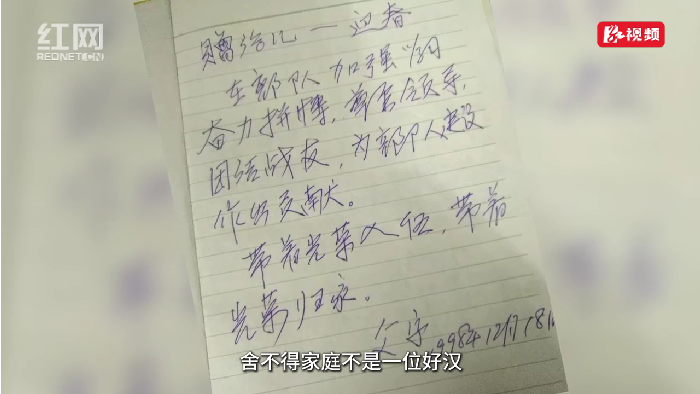 红网
REDNET.CN
视频
赠给儿一迎春
在部队加强
奋力拼搏，尊重领导，
团结战友，为部队建设
作出贡献。
带着光荣入伍，带着
光荣归家。
父字
1984 12月18日
舍不得家庭不是一位好汉